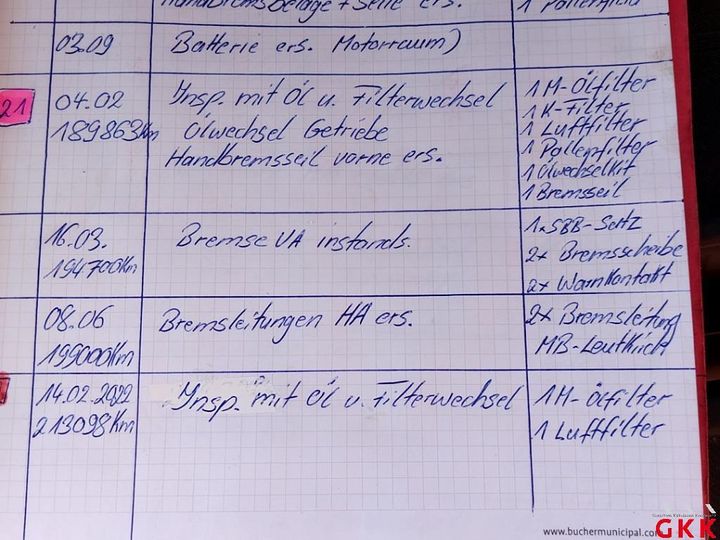 Handbremsbeläge + Seile ers.
1 Pollenfilter
03.09
Batterie ers. Motorraum)
21
04.02
189863Km
Insp. mit Öl u. Filterwechsel
Ölwechsel Getriebe
Handbremsseil vorne ers.
1 M-Ölfilter
1 K-Filter
1 Luftfilter
1 Pollenfilter
1 Ölwechselkit
1 Bremsseil
16.03.
194700Km
Bremse VA instands.
1x SBB-Satz
2x Bremsscheibe
2x Warnkontakt
08.06
199000Km
Bremsleitungen HA ers.
2x Bremsleitung
MB-Leutkirch
14.02.2022
213098Km
Insp. mit Öl u. Filterwechsel
1 M-Ölfilter
1 Luftfilter
www.buchermunicipal.com
GKK